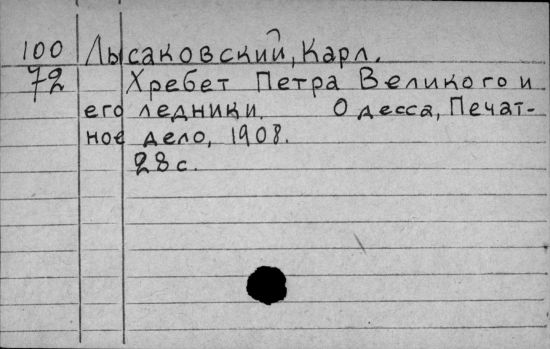 100 Лысаковский, Карл.
72 Хребет Петра Великого и
его ледники. Одесса, Печат-
ное дело, 1908.
28 с.